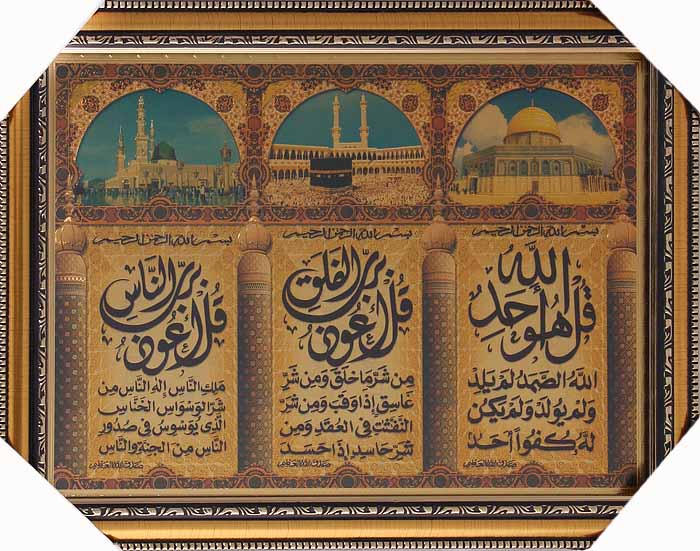 بسم الله الرحمن الرحيم
قل هو الله أحد
الله الصمد لم يلد
ولم يولد ولم يكن
له كفوا أحد
صدق الله العظيم
بسم الله الرحمن الرحيم
قل أعوذ برب الفلق
من شر ما خلق ومن شر
غاسق إذا وقب ومن شر
النفثت في العقد ومن
شر حاسد إذا حسد
صدق الله العظيم
بسم الله الرحمن الرحيم
قل أعوذ برب الناس
ملك الناس إله الناس من
شر الوسواس الخناس
الذي يوسوس في صدور
الناس من الجنة والناس
صدق الله العظيم